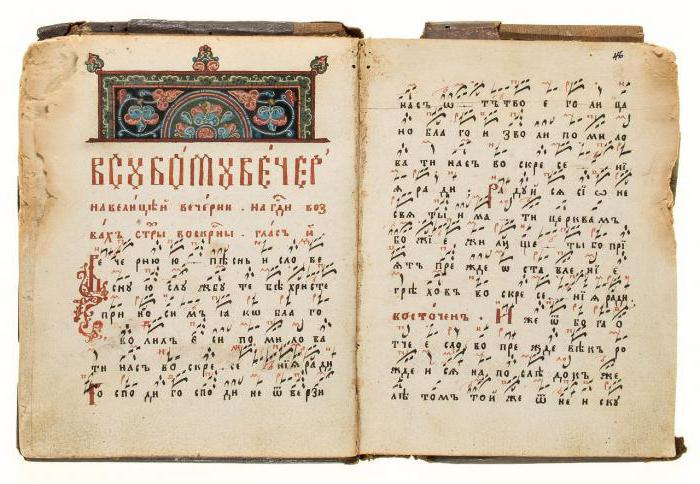 В СУБОТУ ВЕЧЕР
на велицѣй вечерни . на гд҇и воз
вахъ стр҇ы воскр҇ны . гласъ и҃ .
Ве че рню ю пѣ снь и сло ве
сну ю слу жбу те бѣ хри сте
при но си мъ ꙗ кѡ бла го
во лилъ е си по ми ло ва
ти насъ во скре се ні я ра ди
Го спо ди го спо ди не ѿ ве рзи
46
насъ ѿ тъ тво е го ли ца
но бла го и зво ли по ми ло
ва ти насъ во скре се ні
я ра ди . Ра дуй ся сі ѡ не
свя ты и ма ти церквамъ
бо жі е жи ли ще ты бо прі
ятъ пре жде ѡ ста вле ні е
грѣ ховъ во скре се ні я ради
восточенъ . И же ѿ бо га о
тче е сло во пре жде вѣкъ ро
жде и ся на по слѣ докъ же
лѣ томъ той же ѿ не и ску